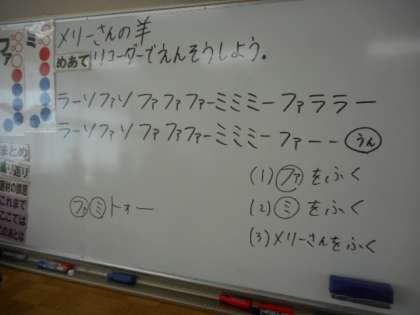 メリーさんの羊
めあて リコーダーでえんそうしよう。
ラーソファソファファファーミミミーファララー
ラーソファソファファファーミミミーファーーうん
(1)ファをふく
(2)ミをふく
(3)メリーさんをふく
ミ
ファ
まとめ
振り返り
これまで
ここでは